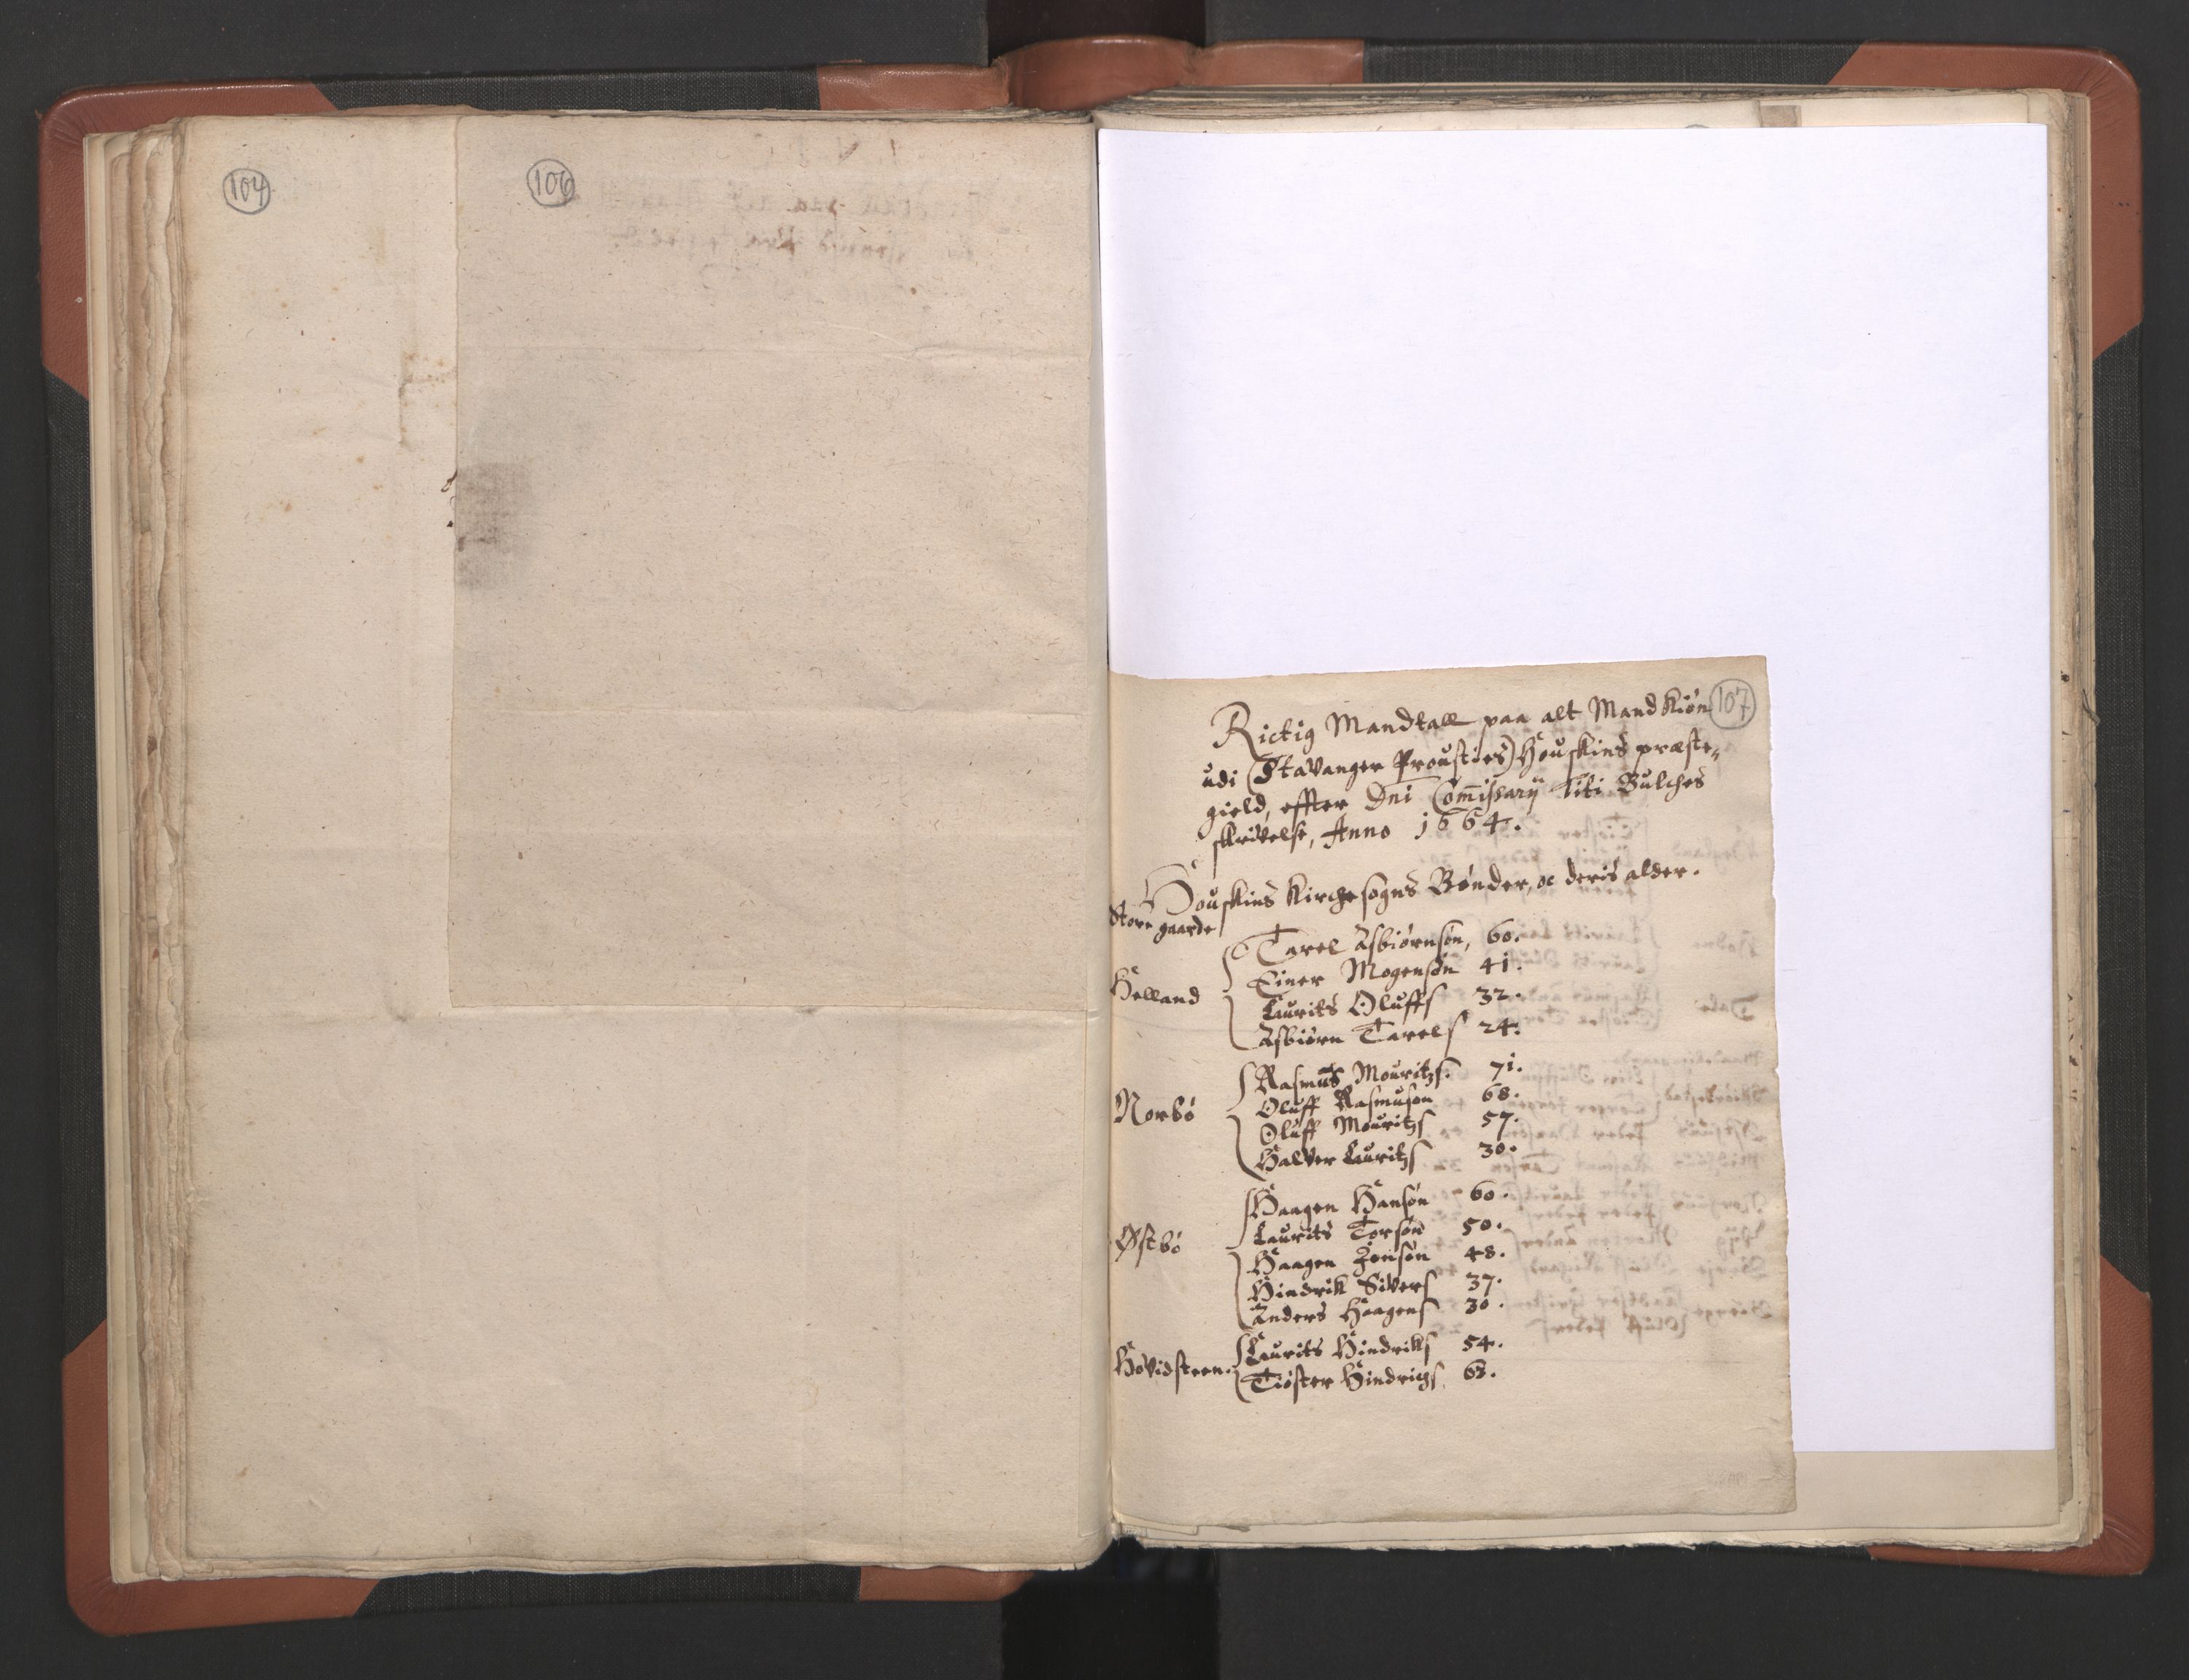 104
106
107
Rictig Mandtall paa alt Mandkiøn
udi (Stavanger Prousties) Houskins præste-
gield, effter Dni Com̄issarij Titi Bulches
skrivelse, Anno 1664.
Houskins Kirchesogns Bønder, oc deris alder.
Store gaarde
Tarel Asbiørnsøn, 60.
Einer Mogensøn 41.
Helland
Laurits Oluffs 32.
Asbiørn Tarels 24.
Rasmus Mouritzs. 71.
Oluff Rasmusøn 68.
Norbø
Oluff Mouritzs 57.
Halver Lauritzs 30.
Haagen Hansøn 60.
Laurits Torsøn 50.
Østbø
Haagen Jonsøn 48.
Hindrik Sivers 37.
Anders Haagens 30.
Laurits Hindriks 54.
Hovidsteen.
Tiøster Hindrichs 63.